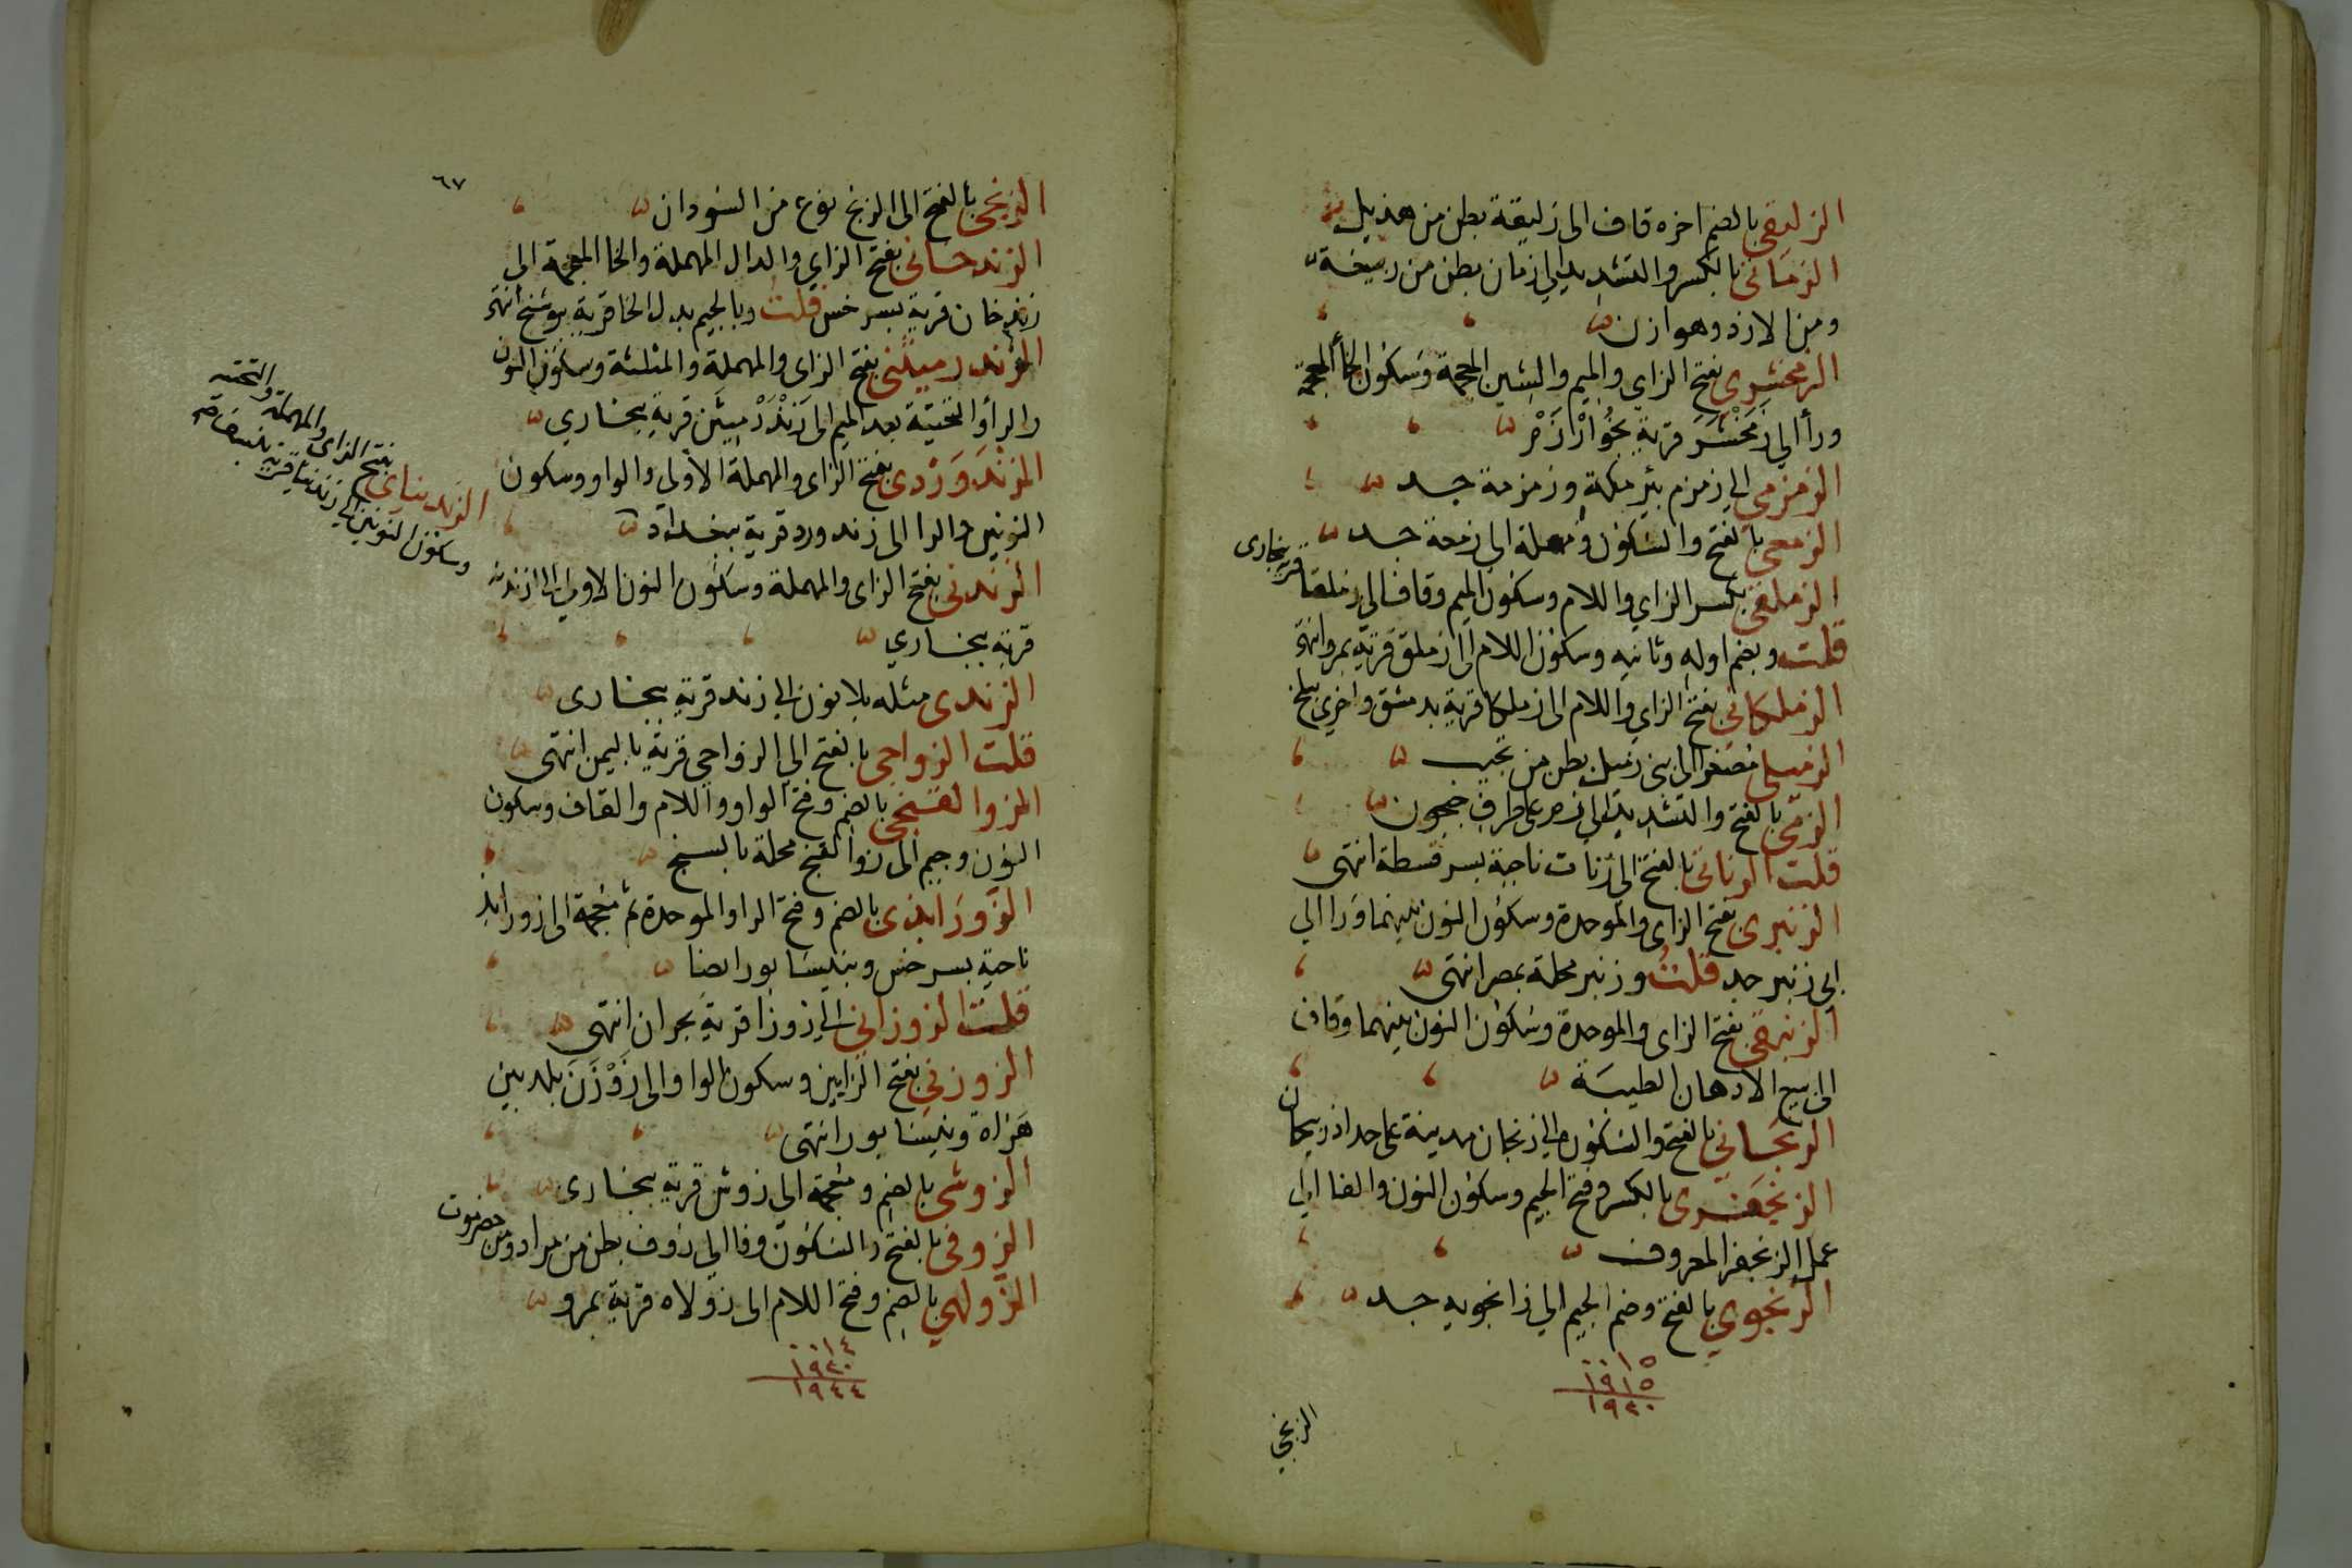 الزليفى بالضم اخره قاف الى زليقة بطن من هذيل
الزمانى بالكسر والتشديد الي زمان بطن من ربيعة
ومن الازد وهوازن
الزمخشرى بفتح الزاي والميم والشين المعجمة وسكون الخا المعجمة
ورا الي زمخشر قرية بخوارزم
الزمزمى الي زمزم بئر مكة وزمزمة جد
الزمعى بالفتح والسكون ومهملة الي زمعة جد
الزملقى بكسر الزاي واللام وسكون الميم وقاف الي زملقا قرية ببخارى
قلت وبضم اوله وثانيه وسكون اللام الى زملق قرية بمرو انتهى
الزملكانى بفتح الزاي واللام الى زملكا قرية بدمشق واخري ببلخ
الزميلى مصغرا الي بنى زميل بطن من تجيب
الزمى بالفتح والتشديد الي زم على طرف جيحون
قلت الزناتى بالفتح الي زنات ناحية بسرقسطة انتهى
الزنبرى بفتح الزاى والموحدة وسكون النون بينهما ورا الي
ابي زنبر جد قلت وزنبر محلة بمصر انتهى
الزنبقى بفتح الزاى والموحدة وسكون النون بينهما وقاف
الى بيع الادهان الطيبة
الزنجانى بالفتح والسكون الي زنجان مدينة على حد اذربيجان
الزنجفرى بالكسر وفتح الجيم وسكون النون والفا الي
عمل الزنجفر المعروف
الزنجوي بالفتح وضم الجيم الي زانجويه جد
٠٠١٥
١٩١٥
١٩٢٠
الزنجي
٦٧
الزنجى بالفتح الى الزنج نوع من السودان
الزندخانى بفتح الزاي والدال المهملة والخا المعجمة الى
زندخان قرية بسرخس قلت وبالجيم بدل الخا قرية ببوشنج انتهى
الزندرميثنى بفتح الزاى والمهملة والمثلثة وسكون النون
والرا والتحتية بعد الميم الى زندرميثن قرية ببخاري
الزندوردى بفتح الزاى والمهملة الاولى والواو وسكون
النونين والرا الى زندورد قرية ببغداد
الزندنى بفتح الزاى والمهملة وسكون النون الاولى الى زندنه
قرية ببخاري
الزندى مثله بلا نون الي زند قرية ببخارى
قلت الزواحى بالفتح الي الزواحي قرية باليمن انتهى
الزوالقنجى بالضم وفتح الواو واللام والقاف وسكون
النون وجيم الى زوالقنج محلة بالسنج
الزورابذى بالضم وفتح الرا والموحدة ثم معجمة الى زورابذ
ناحية بسرخس وبنيسابور ايضا
قلت الزوزانى الي زوزا قرية بحران انتهى
الزوزنى بفتح الزايين وسكون الواو الى زوزن بلد بين
هراة ونيسابور انتهى
الزوشى بالضم ومعجمة الى زوش قرية ببخارى
الزوفى بالفتح والسكون وفا الي زوف بطن من مراد ومن حضرموت
الزولهي بالضم وفتح اللام الى زولاه قرية بمرو
٠٠١٤
١٩٣٠
١٩٤٤
الزنديناى بفتح الزاى والمهملة والتحتية
وسكون النونين الي زندينا قرية بنسف